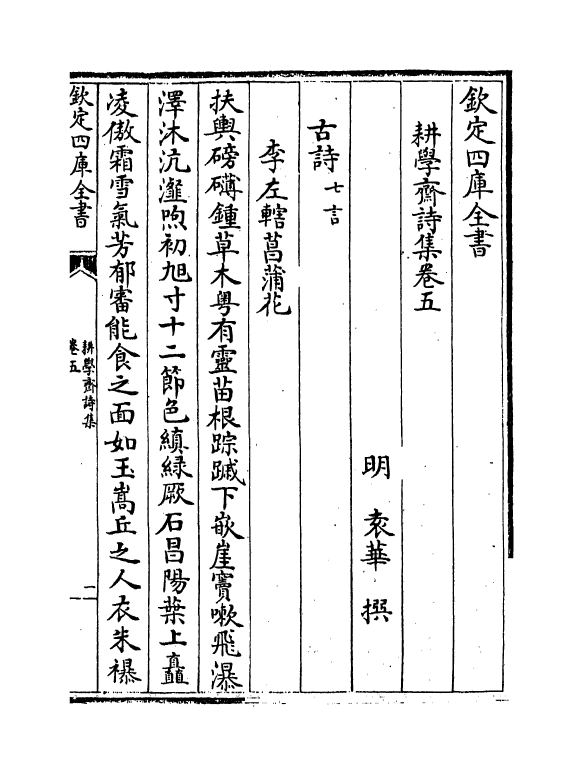 欽定四庫全書
耕學齋詩集卷五
明 袁華 撰
古詩七言
李左轄菖蒲花
扶輿磅礴鍾草木粤有靈苗根踪䠞下嵌崖竇嗽飛瀑
澤沐沆瀣喣初旭寸十二節色縝緑厥石昌陽葉上矗
凌傲霜雪氣芳郁審能食之面如玉嵩丘之人衣朱襮
欽定四庫全書
耕學齋詩集
卷五
一